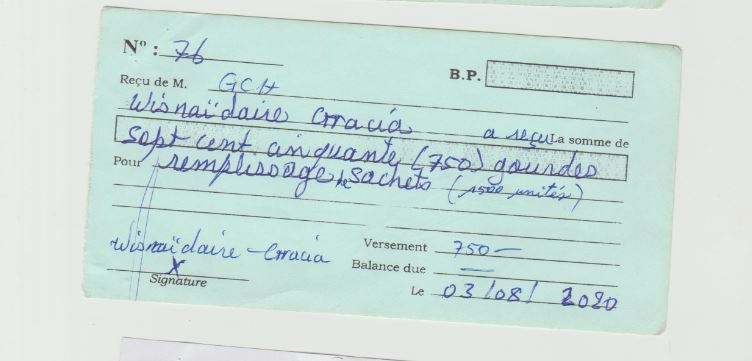 Nº : 76
B.P.
Reçu de M. GCH
Wisnaïdaire Erracia a reçu La somme de
Sept cent cinquante (750) gourdes
Pour remplissage de sachets (1500 unités)
Versement 750 —
Wisnaïdaire Erracia
Balance due —
X
Signature
Le 03/08/2020